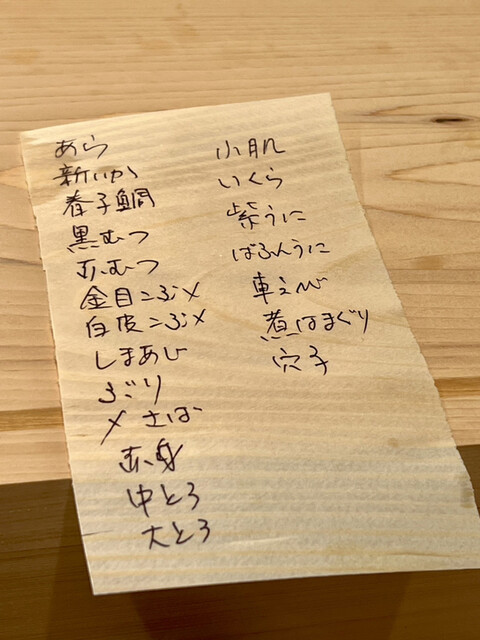 あら
新いか
春子鯛
黒むつ
赤むつ
金目こぶ〆
白皮こぶ〆
しまあじ
ぶり
〆さば
赤身
中とろ
大とろ
小肌
いくら
紫うに
ばふんうに
車えび
煮はまぐり
穴子